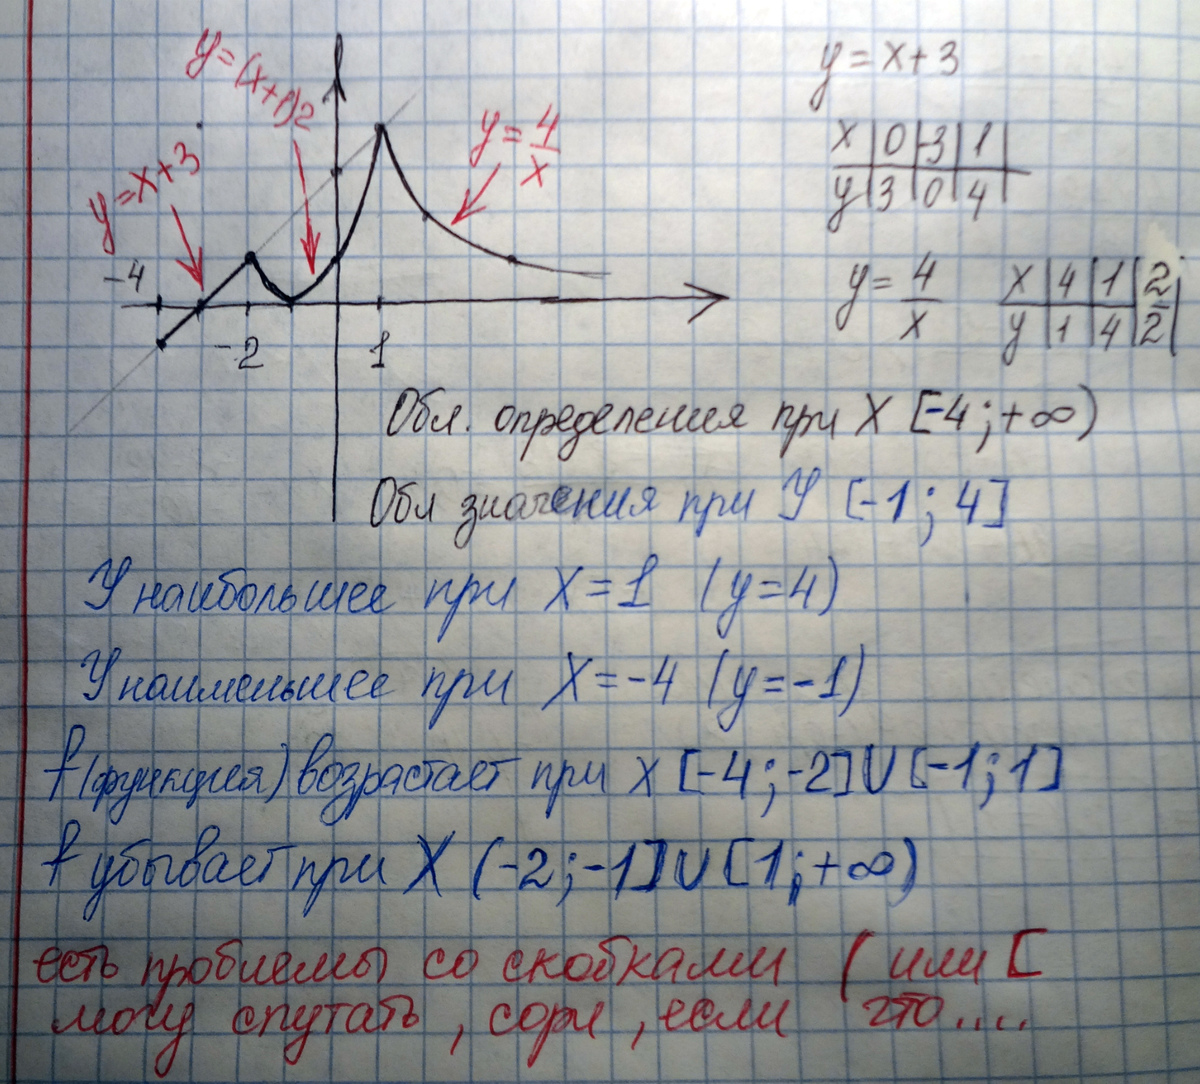 y=(x+1)2
y=x+3
y=4/x
-4
-2
1
y=x+3
x | 0 | -3 | 1
y | 3 | 0 | 4
y=4/x
x | 4 | 1 | 2
y | 1 | 4 | 2
Обл. определения при X [-4;+∞)
Обл значения при У [-1;4]
У наибольшее при X=1 (y=4)
У наименьшее при X=-4 (y=-1)
f(функция) возрастает при x [-4;-2]U[-1;1]
f убывает при X (-2;-1]U[1;+∞)
есть проблемы со скобками ( или [
могу спутать, сори, если что....